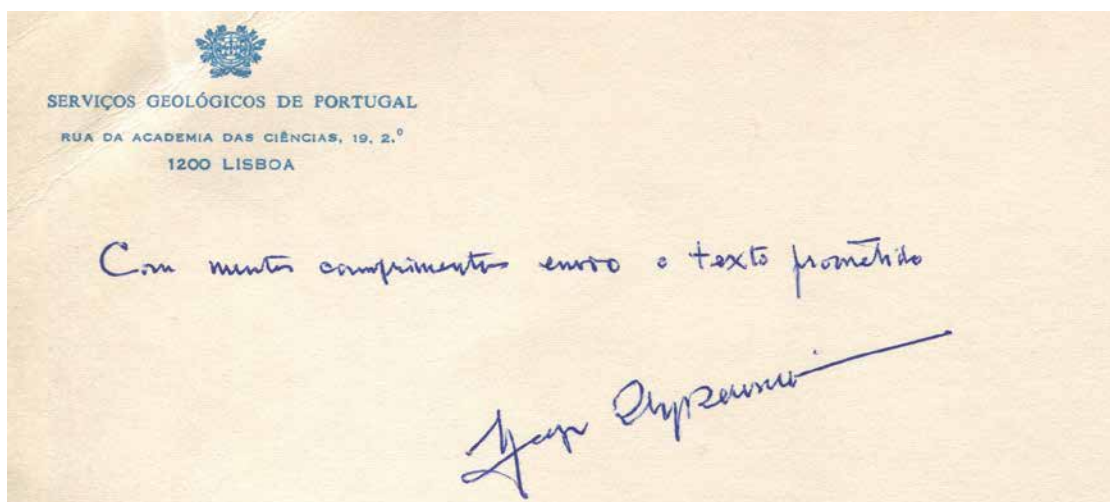 SERVIÇOS GEOLÓGICOS DE PORTUGAL
RUA DA ACADEMIA DAS CIÊNCIAS, 19, 2.º
1200 LISBOA
Com muitos cumprimentos envio o texto prometido